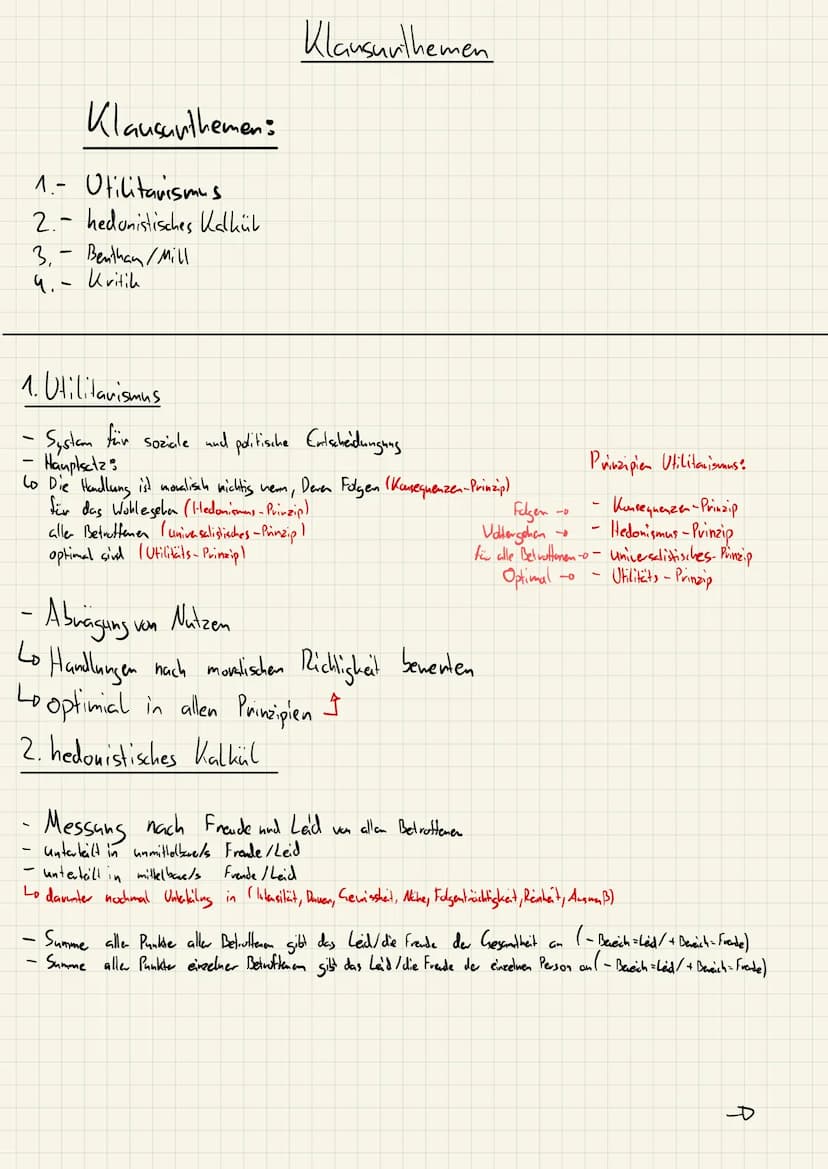 Klausurthemen
Klausurthemen:
1.- Utilitarismus
2.- hedonistisches Kalkül
3.- Bentham/Mill
4.- Kritik
1. Utilitarismus
- System für soziale und politische Entscheidungung
- Hauptsatz:
↳ Die Handlung ist moralisch richtig wenn, Deren Folgen (Konsequenzen-Prinzip)
für das Wohlergehen (Hedonismus-Prinzip)
aller Betroffenen (universalistisches-Prinzip)
optimal sind (Utilitäts-Prinzip)
Prinzipien Utilitarismus:
Folgen → - Konsequenzen-Prinzip
Wohlergehen → - Hedonismus-Prinzip
für alle Betroffenen → - universalistisches-Prinzip
Optimal → - Utilitäts-Prinzip
- Abwägung von Nutzen
↳ Handlungen nach moralischen Richtigkeit bewerten
↳ optimial in allen Prinzipien ↑
2. hedonistisches Kalkül
- Messung nach Freude und Leid von allen Betroffenen
- unterteilt in unmittelbare/s Freude/Leid
- unterteilt in mittelbare/s Freude/Leid
↳ darunter nochmal Unterteilung in (Intensität, Dauer, Gewissheit, Nähe, Folgenträchtigkeit, Reinheit, Ausmaß)
- Summe aller Punkte aller Betroffenen gibt das Leid/die Freude der Gesamtheit an (- Bereich=Leid/+ Bereich=Freude)
- Summe aller Punkte einzelner Betroffenen gibt das Leid/die Freude der einzelnen Person an (- Bereich=Leid/+ Bereich=Freude)
→